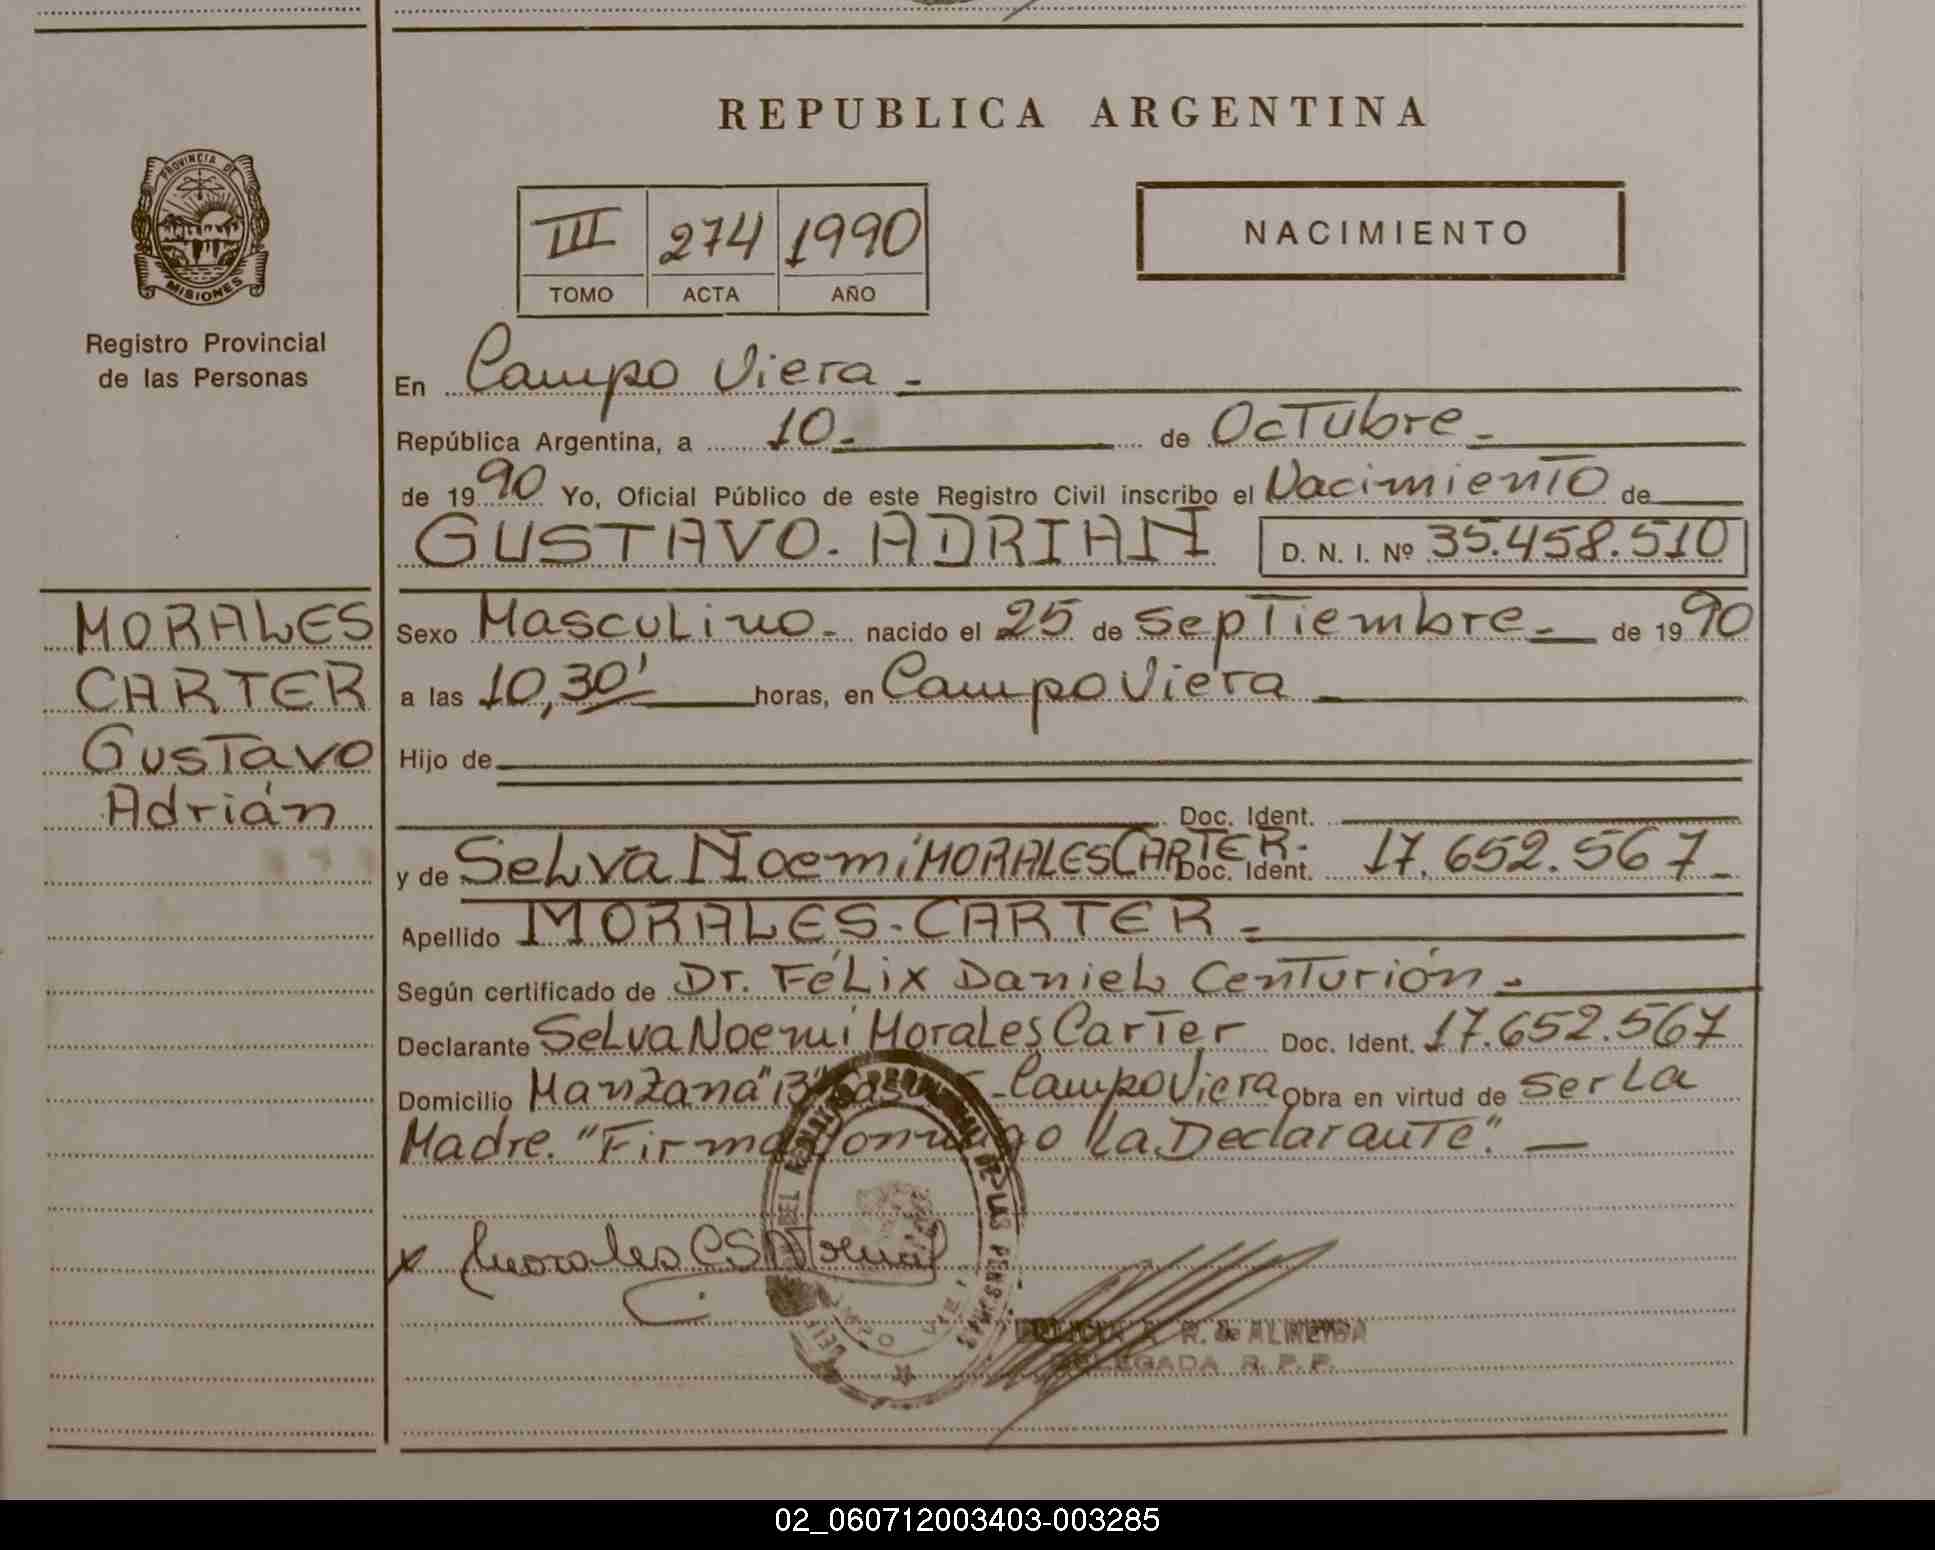 REPUBLICA ARGENTINA
PROVINCIA DE
MISIONES
Registro Provincial
de las Personas
III 274 1990
TOMO ACTA AÑO
NACIMIENTO
En Campo Viera -
República Argentina, a 10- de Octubre -
de 1990 Yo, Oficial Público de este Registro Civil inscribo el Nacimiento de
GUSTAVO. ADRIAN D. N. I. Nº 35.458.510
MORALES
CARTER
Gustavo
Adrián
Sexo Masculino - nacido el 25 de septiembre - de 1990
a las 10,30' horas, en Campo Viera
Hijo de
Doc. Ident.
y de Selva Noemi MORALES CARTER - Doc. Ident. 17.652.567 -
Apellido MORALES - CARTER -
Según certificado de Dr. Félix Daniel Centurión -
Declarante Selva Noemi Morales Carter Doc. Ident. 17.652.567
Domicilio Manzana "13" - Campo Viera Obra en virtud de ser la
Madre. "Firma conmigo la Declarante". —
x Morales C S Noemi
DEL REGISTRO PROVINCIAL DE LAS PERSONAS
R. de ALMEIDA
DELEGADA R. P. P.
02_060712003403-003285